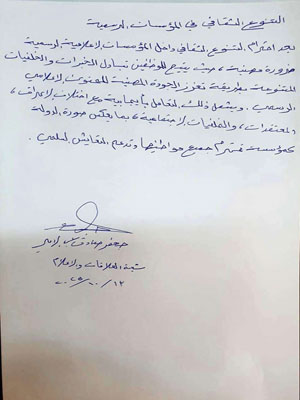 التنوع الثقافي في المؤسسات الرسمية
يعد احترام التنوع الثقافي داخل المؤسسات الاعلامية الرسمية
ضرورة مهنية، حيث يتيح للموظفين تبادل الخبرات والخلفيات
المتنوعة بطريقة تعزز الجودة المهنية للمحتوى الاعلامي
الرسمي. ويشمل ذلك التعامل بأيجابية مع اختلاف الاعراق،
والمعتقدات، والخلفيات الاجتماعية، بما يعكس صورة الدولة
كمؤسسة تحترم جميع مواطنيها وتدعم التعايش السلمي.
جعفر صادق عبد الامير
شعبة العلاقات والاعلام